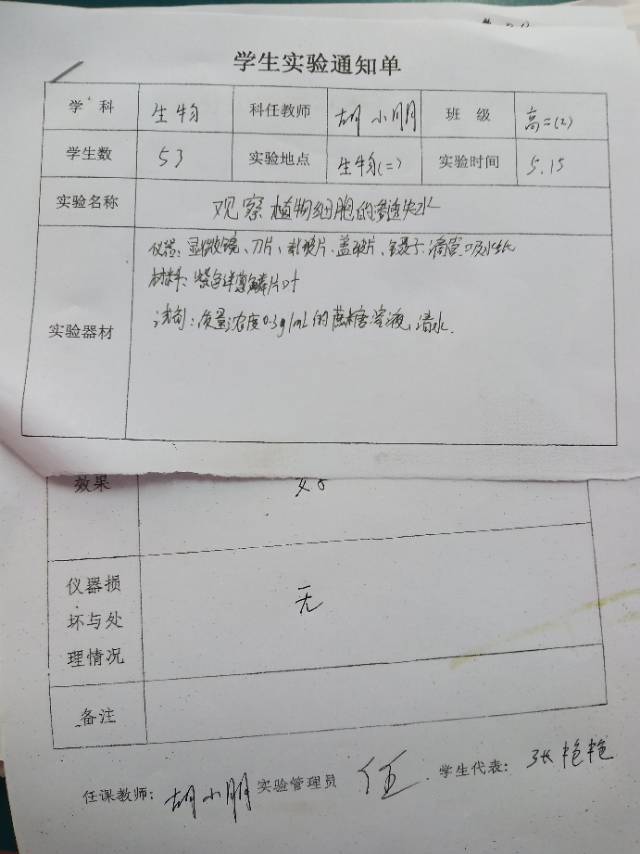 学生实验通知单
学科 生物 科任教师 胡小朋 班级 高二(2)
学生数 53 实验地点 生物(二) 实验时间 5.15
实验名称 观察植物细胞的渗透失水
仪器：显微镜、刀片、载玻片、盖玻片、镊子、滴管、吸水纸
材料：紫色洋葱鳞片叶
实验器材
试剂：质量浓度0.3g/mL的蔗糖溶液，清水．
效果
仪器损
坏与处 无
理情况
备注
任课教师：胡小朋 实验管理员 学生代表：张艳艳